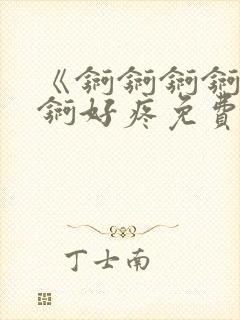 《锕锕锕锕
锕好疼免費
丁士南